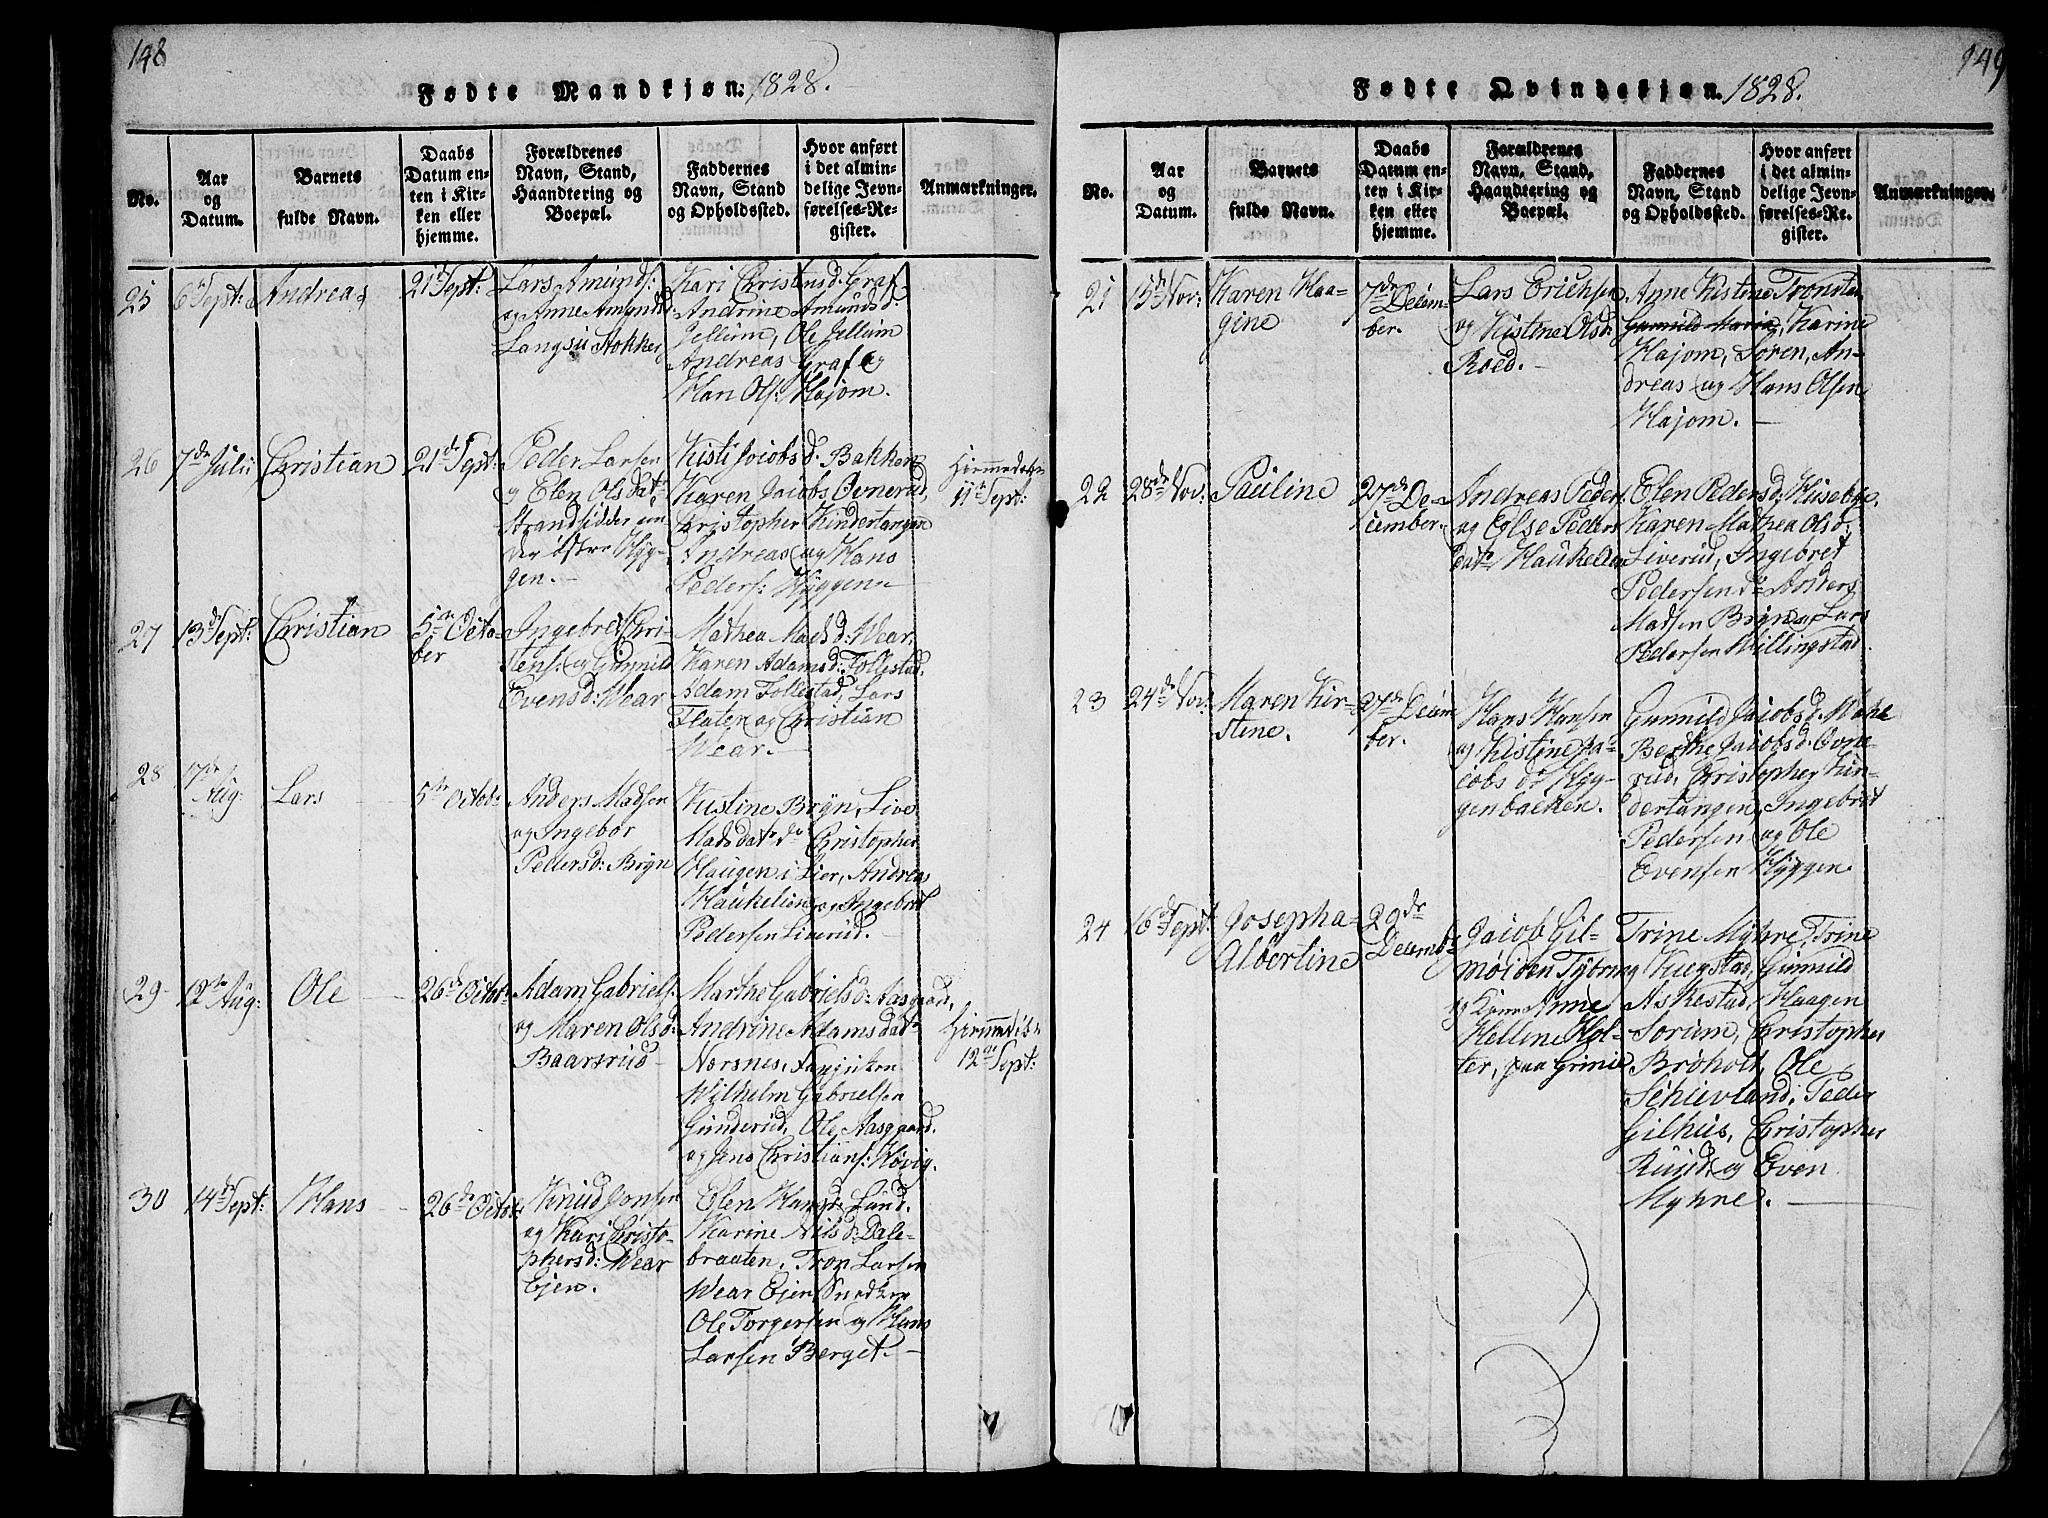 148
Fødte Mandkjøn: 1828.
No.
Aar og Datum.
Barnets fulde Navn.
Daabs Datum enten i Kirken eller hjemme.
Forældrenes Navn, Stand, Haandtering og Boepæl.
Faddernes Navn, Stand og Opholdssted.
Hvor anført i det almindelige Jevnførelses-Register.
Anmærkninger.
25
6 Sept:
Andreas
21 Sept:
Lars Amunds:
og Anne Amunds:
Langsu Stokker
Kari Christensd: Graf
Andrine Amundsd:
Jellum, Ole Jellum
Andreas Graf og
Han Ols: Hajom.
26
7de Julii
Christian
21de Sept:
Peder Larsen
og Elen Olsdat
Strandsidder un
der østre Hyg-
gen.
Kisti Jacobsd: Bakken
Karen Jacobs Ovnerud,
Christopher Kindertangen
Andreas og Hans
Peders: Hyggen
Hiemmedøbt
11te Sept:
27
13de Sept:
Christian
5te Octo-
ber
Ingebret Chri-
stens: og Gunnild
Evensd: Wear
Mathea Madsd: Wear
Karen Adamsd: Follestad,
Adam Follestad, Lars
Flaten og Christian
Wear.
28
17de
Aug:
Lars
5te Octob:
Anders Madsen
og Ingebor
Pedersd: Bryn
Kistine Bryn, Live
Madsdat do Christopher
Haugen i Lier, Andreas
Haukelien og Ingebret
Pedersen Liverud.
29
12te Aug:
Ole
26de Octob:
Adam Gabriels:
og Maren Olsd:
Baarsrud
Marthe Gabrielsd: Aasgaard,
Andrine Adamsdat
Norsnes,
Wilhelm Gabrielsen
Gunderud, Ole Aasgaard
og Jens Christians: Høvig.
Hiemmedøbt
12te Sept:
30
14de Sept:
Hans
26de Octob
Knud Jonsen
og Kari Christo-
phersd: Wear
Ejen.
Elen Hansd: Lund.
Karine Nilsd: Dale-
braaten, Tron Larsen
Wear Ejen, Snedker
Ole Torgersen og Hans
Larsen Berget.
149
Fødte Qvindekjøn. 1828.
No.
Aar og Datum.
Barnets fulde Navn.
Daabs Datum enten i Kirken eller hjemme.
Forældrenes Navn, Stand, Haandtering og Boepæl.
Faddernes Navn, Stand og Opholdssted.
Hvor anført i det almindelige Jevnførelses-Register.
Anmærkninger.
21
15de Nov:
Karen Haa-
gine
7de Decem-
ber.
Lars Erichsen
og Kistene Olsd:
Roed.
Anne Kistene Tronsta
Gunnild Maria, Karine
Hajom, Søren, An-
dreas og Hans Olsen
Hajom.
22
28de Nov:
Pauline
27de De-
cember.
Andreas Peders.
og Else Peders
dat Haukelien
Elen Pedersd: Huseby,
Karen Mathea Olsd:
Liverud, Ingebret
Pedersen do Anders
Madsen Bryn og Lars
Pedersen Killingstad.
23
24de Nov:
Maren Kir-
stene.
27de Decem
ber.
Hans Hansen
og Kistine Ja-
cobs dt Hyg-
genbakken.
Gunnild Jacobsd: Mohe
Berthe Jacobsd: Ovne-
rud, Christopher Kin-
dertangen, Ingebret
Pedersen og Ole
Evensen Hyggen.
24
16de Sept:
Josepha
Albertine
29de
Decemb:
Jacob Gil-
møiden Tybring
og Kone Anne
Hellene Hol-
ter, paa Grinie
Trine Myhre, Trine
Kuestad, Gunnild
Askestad, Haagen
Sorium, Christopher
Brøholt, Ole
Schievland, Peder
Gilhus, Christopher
Ruud og Even
Myhre.